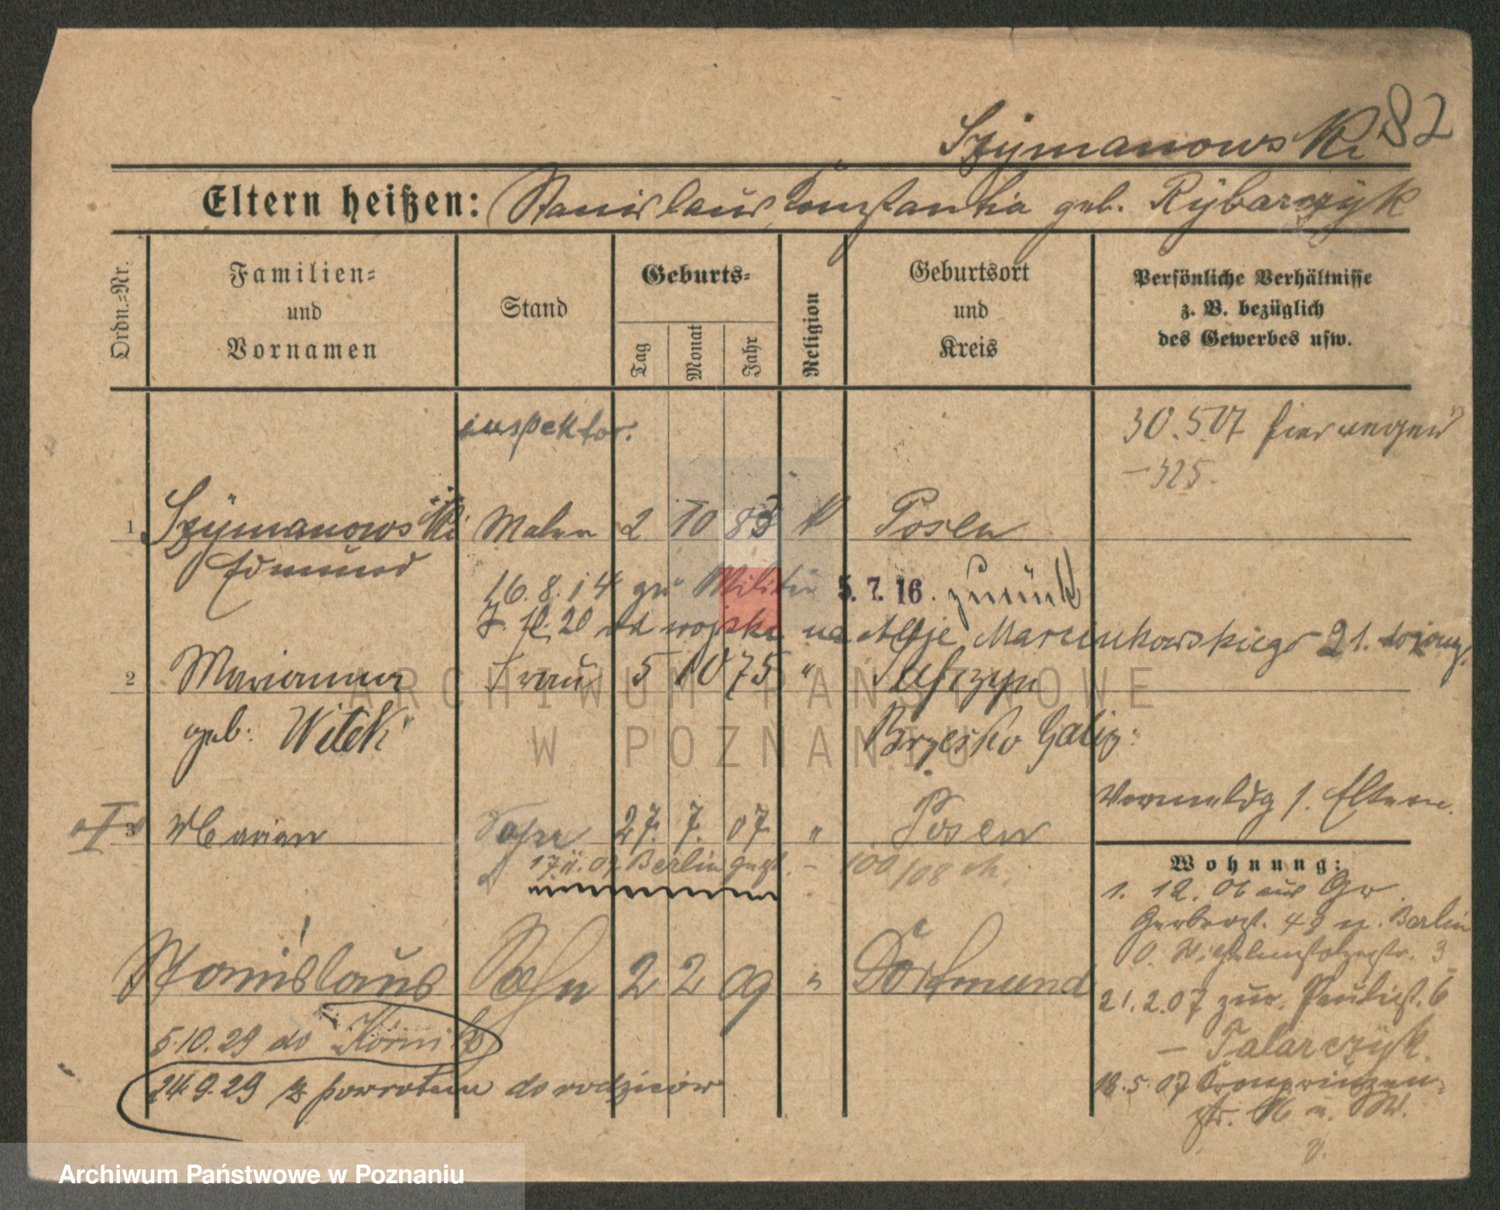 Szymanowski 82
Eltern heißen: Stanislaus, Konstantia geb. Rybarczyk
Ordn.-Nr.
Familien- und Vornamen
Stand
Geburts-
Tag
Monat
Jahr
Religion
Geburtsort und Kreis
Persönliche Verhältnisse z. B. bezüglich des Gewerbes usw.
inspektor.
30.5.07 hier wegen
325.
1 Szymanowski Maler 2 10 83 K Posen
Edmund
16.8.14 zu Militär 5.7.16. zurück
7. 12. 20 od wojska na Aleje Marcinkowskiego 21.
2 Marianna Frau 5 10 75 "
geb. Witek
Brzesko Galiz:
Vormeldg s. Eltern.
3 Marian Sohn 27. 7. 07 " Posen
17.11.07 Berlin
100/08
Wohnung:
1. 12. 06 aus Gr.
Gerberst. 48 n. Berlin
Stanislaus Sohn 2 2 09 " Dortmund
21.2.07 zur. Paulist. 6
5.10.29 do Kórnik
– Talarczyk.
24.9.29 z powrotem do rodziców
18.5.07 Kronprinzen-
str.
ARCHIWUM PAŃSTWOWE
W POZNANIU
Archiwum Państwowe w Poznaniu